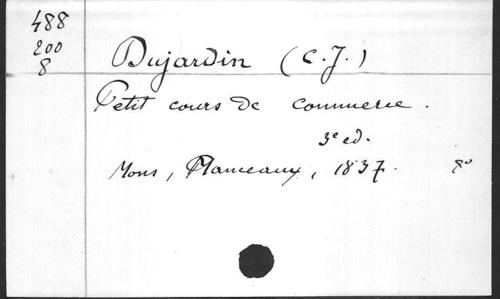 488
200
8
Dujardin (C.J.)
Petit cours de commerce.
3e ed.
Mons, Manceaux, 1837. 8o